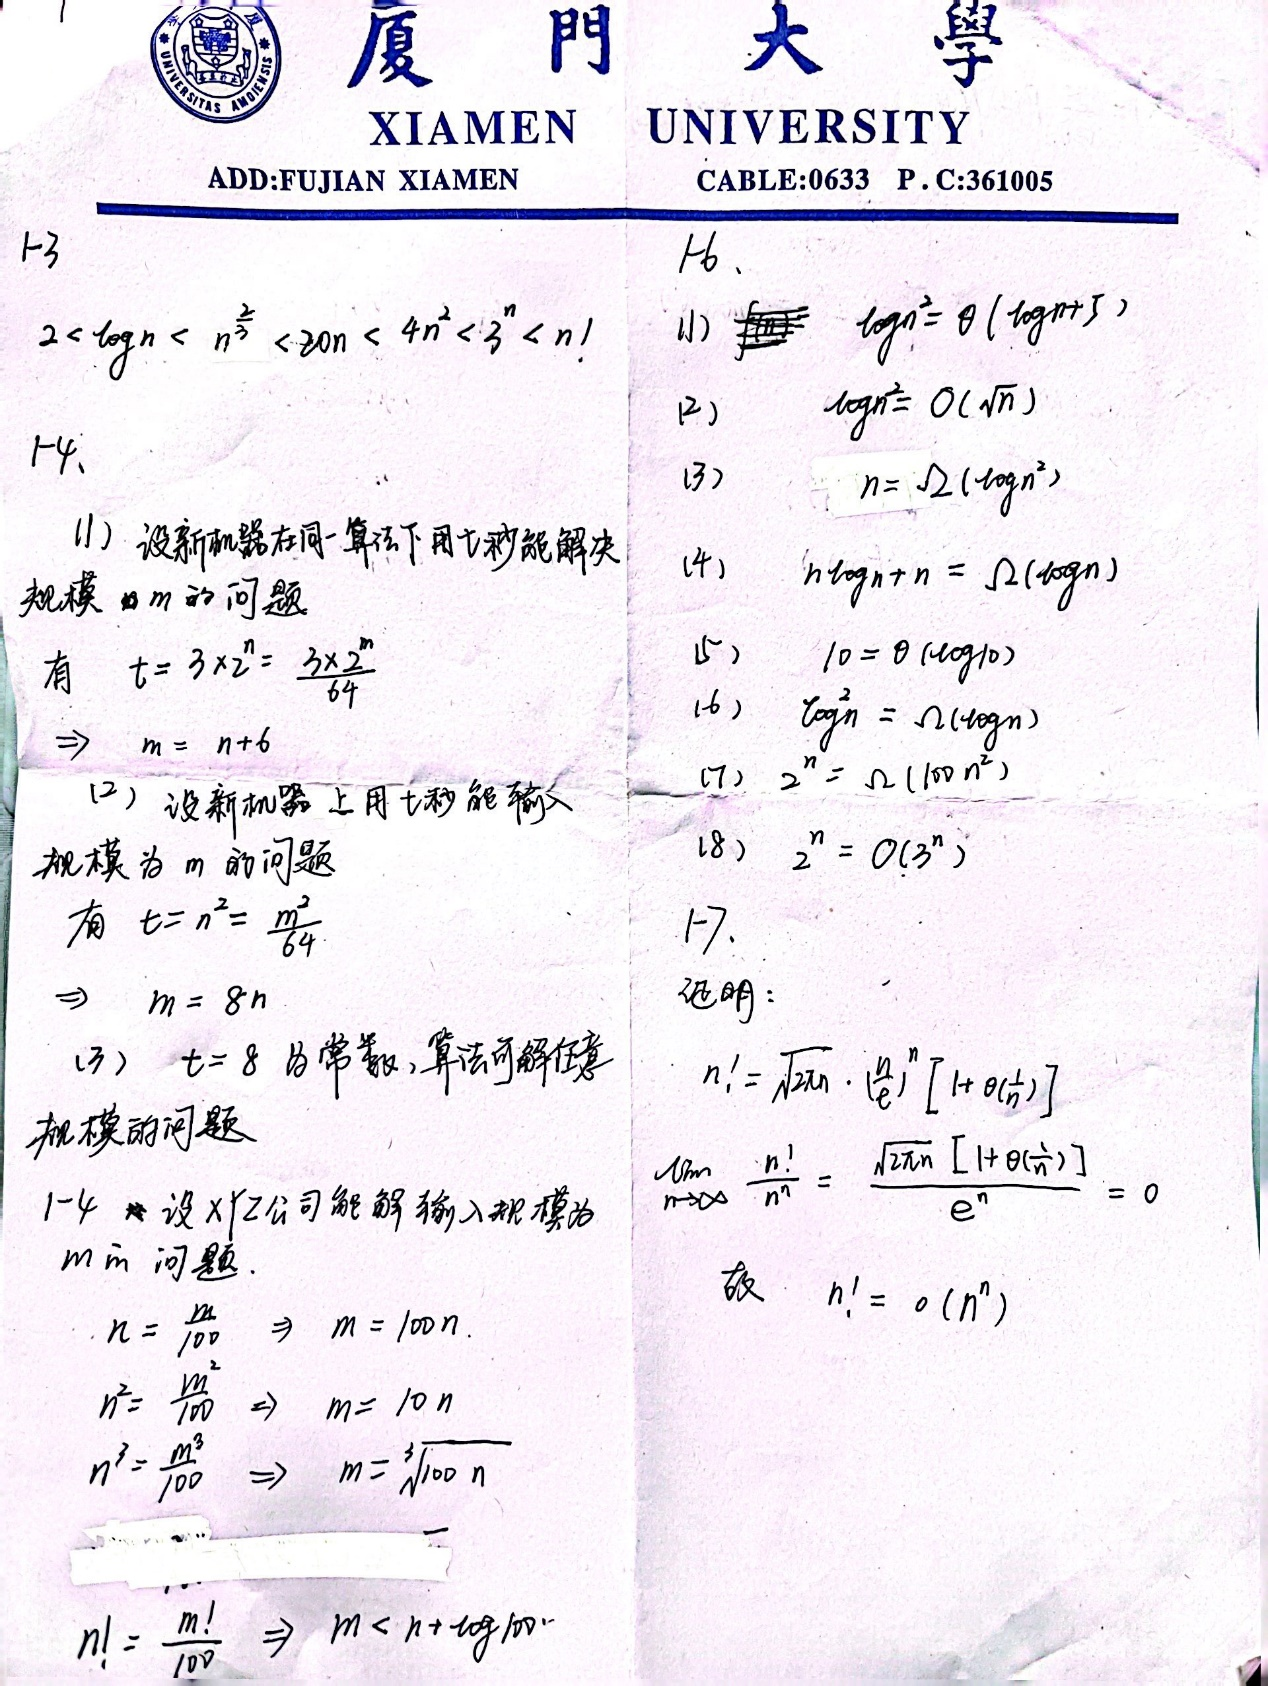 UNIVERSITAS AMOIENSIS
厦門大學
XIAMEN UNIVERSITY
ADD:FUJIAN XIAMEN CABLE:0633 P.C:361005
1-3
2 < logn < n^{2/3} < 20n < 4n^2 < 3^n < n!
1-4、
(1) 设新机器在同一算法下用t秒能解决
规模为m的问题
有 t = 3×2^n = \frac{3×2^m}{64}
⇒ m = n+6
(2) 设新机器上用t秒能输入
规模为m的问题
有 t = n^2 = \frac{m^2}{64}
⇒ m = 8n
(3) t = 8 为常数,算法可解任意
规模的问题
1-4 设XYZ公司能解输入规模为
m的问题.
n = \frac{m}{100} ⇒ m = 100n.
n^2 = \frac{m^2}{100} ⇒ m = 10n
n^3 = \frac{m^3}{100} ⇒ m = \sqrt[3]{100 n}
n! = \frac{m!}{100} ⇒ m < n + log100
1-6、
(1) logn^2 = θ(logn+5)
(2) logn^2 = O(√n)
(3) n = Ω(logn^2)
(4) nlogn+n = Ω(logn)
(5) 10 = θ(log10)
(6) log^2n = Ω(logn)
(7) 2^n = Ω(100n^2)
(8) 2^n = O(3^n)
1-7.
证明:
n! = \sqrt{2πn} · (\frac{n}{e})^n [1+θ(\frac{1}{n})]
lim n→∞ \frac{n!}{n^n} = \frac{\sqrt{2πn} [1+θ(\frac{1}{n})]}{e^n} = 0
故 n! = o(n^n)